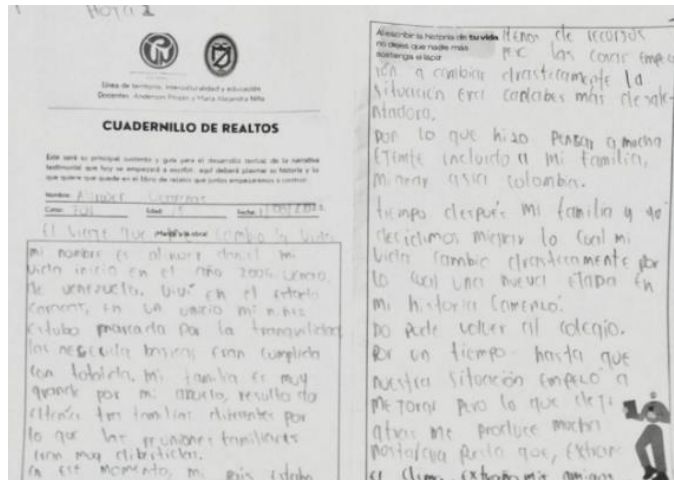 Hoja 1
Línea de territorio, interculturalidad y educación
Docentes: Anderson Pinzón y María Alejandra Niño
CUADERNILLO DE REALTOS
Este será su principal sustento y guía para el desarrollo textual de la narrativa
testimonial que hoy se empezará a escribir, aquí deberá plasmar su historia y lo
que quiere que quede en el libro de relatos que juntos empezaremos a construir.
Nombre:
Curso: 701 Edad: Fecha:
El viaje que cambio la vida
¡Manos a la obra!
mi nombre es daniel mi
vida inicio en el año
de venezuela, viví en el estado
en un inicio mi niñez
estubo marcada por la tranquilidad
las basicas eran cumplida
con mi familia es muy
grande por mi abuelo, resulto
tres familias diferentes por
lo que las reuniones familiares
eran muy
en ese momento, mi país estaba
Al escribir la historia de tu vida
no dejes que nadie más
sostenga el lápiz
llenos de recursos
pero las cosas
a cambiar drasticamente la
situación era más
por lo que hizo pensar a mucha
incluido a mi familia,
colombia.
tiempo después mi familia y yo
decidimos lo cual mi
vida cambio drasticamente por
lo cual una nueva etapa en
mi historia comenzó.
no pude volver al colegio.
Por un tiempo hasta que
nuestra situación empezó a
pero lo que deje
atras me produce mucha
que, extraño
el clima, extraño mis amigos